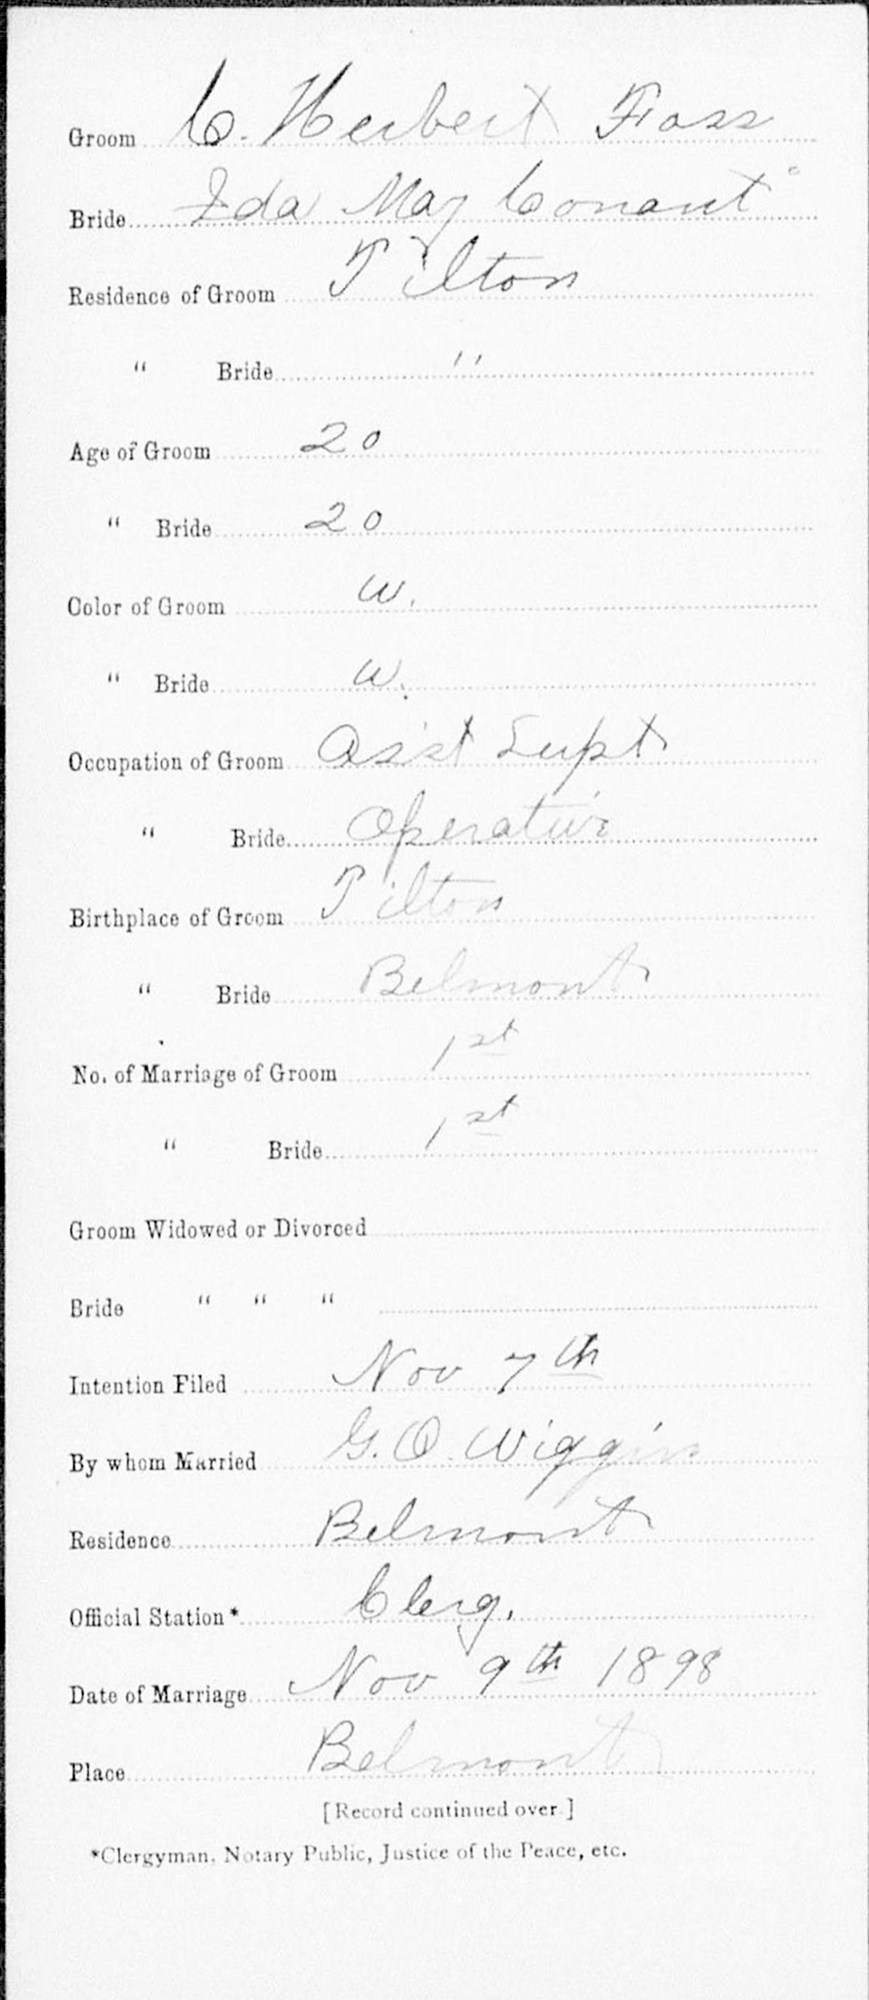 Groom C. Herbert Foss
Bride Ida May Conant
Residence of Groom Tilton
" Bride "
Age of Groom 20
" Bride 20
Color of Groom W.
" Bride W.
Occupation of Groom Ass't Supt
" Bride Operative
Birthplace of Groom Tilton
" Bride Belmont
No. of Marriage of Groom 1st
" Bride 1st
Groom Widowed or Divorced
Bride " " "
Intention Filed Nov 7th
By whom Married G. O. Wiggin
Residence Belmont
Official Station* Clerg.
Date of Marriage Nov 9th 1898
Place Belmont
[Record continued over.]
*Clergyman, Notary Public, Justice of the Peace, etc.